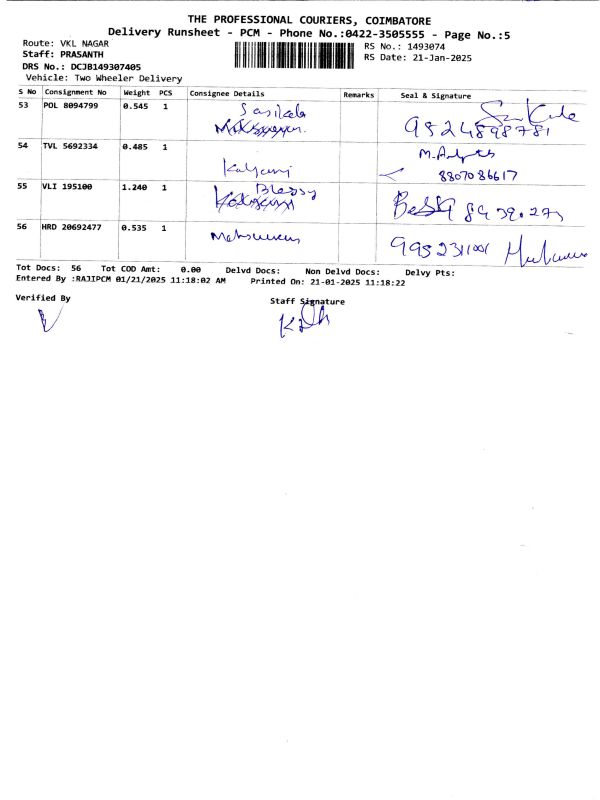 THE PROFESSIONAL COURIERS, COIMBATORE
Delivery Runsheet - PCM - Phone No.:0422-3505555 - Page No.:5
Route: VKL NAGAR
Staff: PRASANTH
DRS No.: DCJB149307405
Vehicle: Two Wheeler Delivery
RS No.: 1493074
RS Date: 21-Jan-2025
S No Consignment No Weight PCS Consignee Details Remarks Seal & Signature
53 POL 8094799 0.545 1 Sasikala
9524898781
54 TVL 5692334 0.485 1 Kalyani
8807086617
55 VLI 195100 1.240 1 Blessy
56 HRD 20692477 0.535 1
Tot Docs: 56 Tot COD Amt: 0.00 Delvd Docs: Non Delvd Docs: Delvy Pts:
Entered By :RAJIPCM 01/21/2025 11:18:02 AM Printed On: 21-01-2025 11:18:22
Verified By
Staff Signature